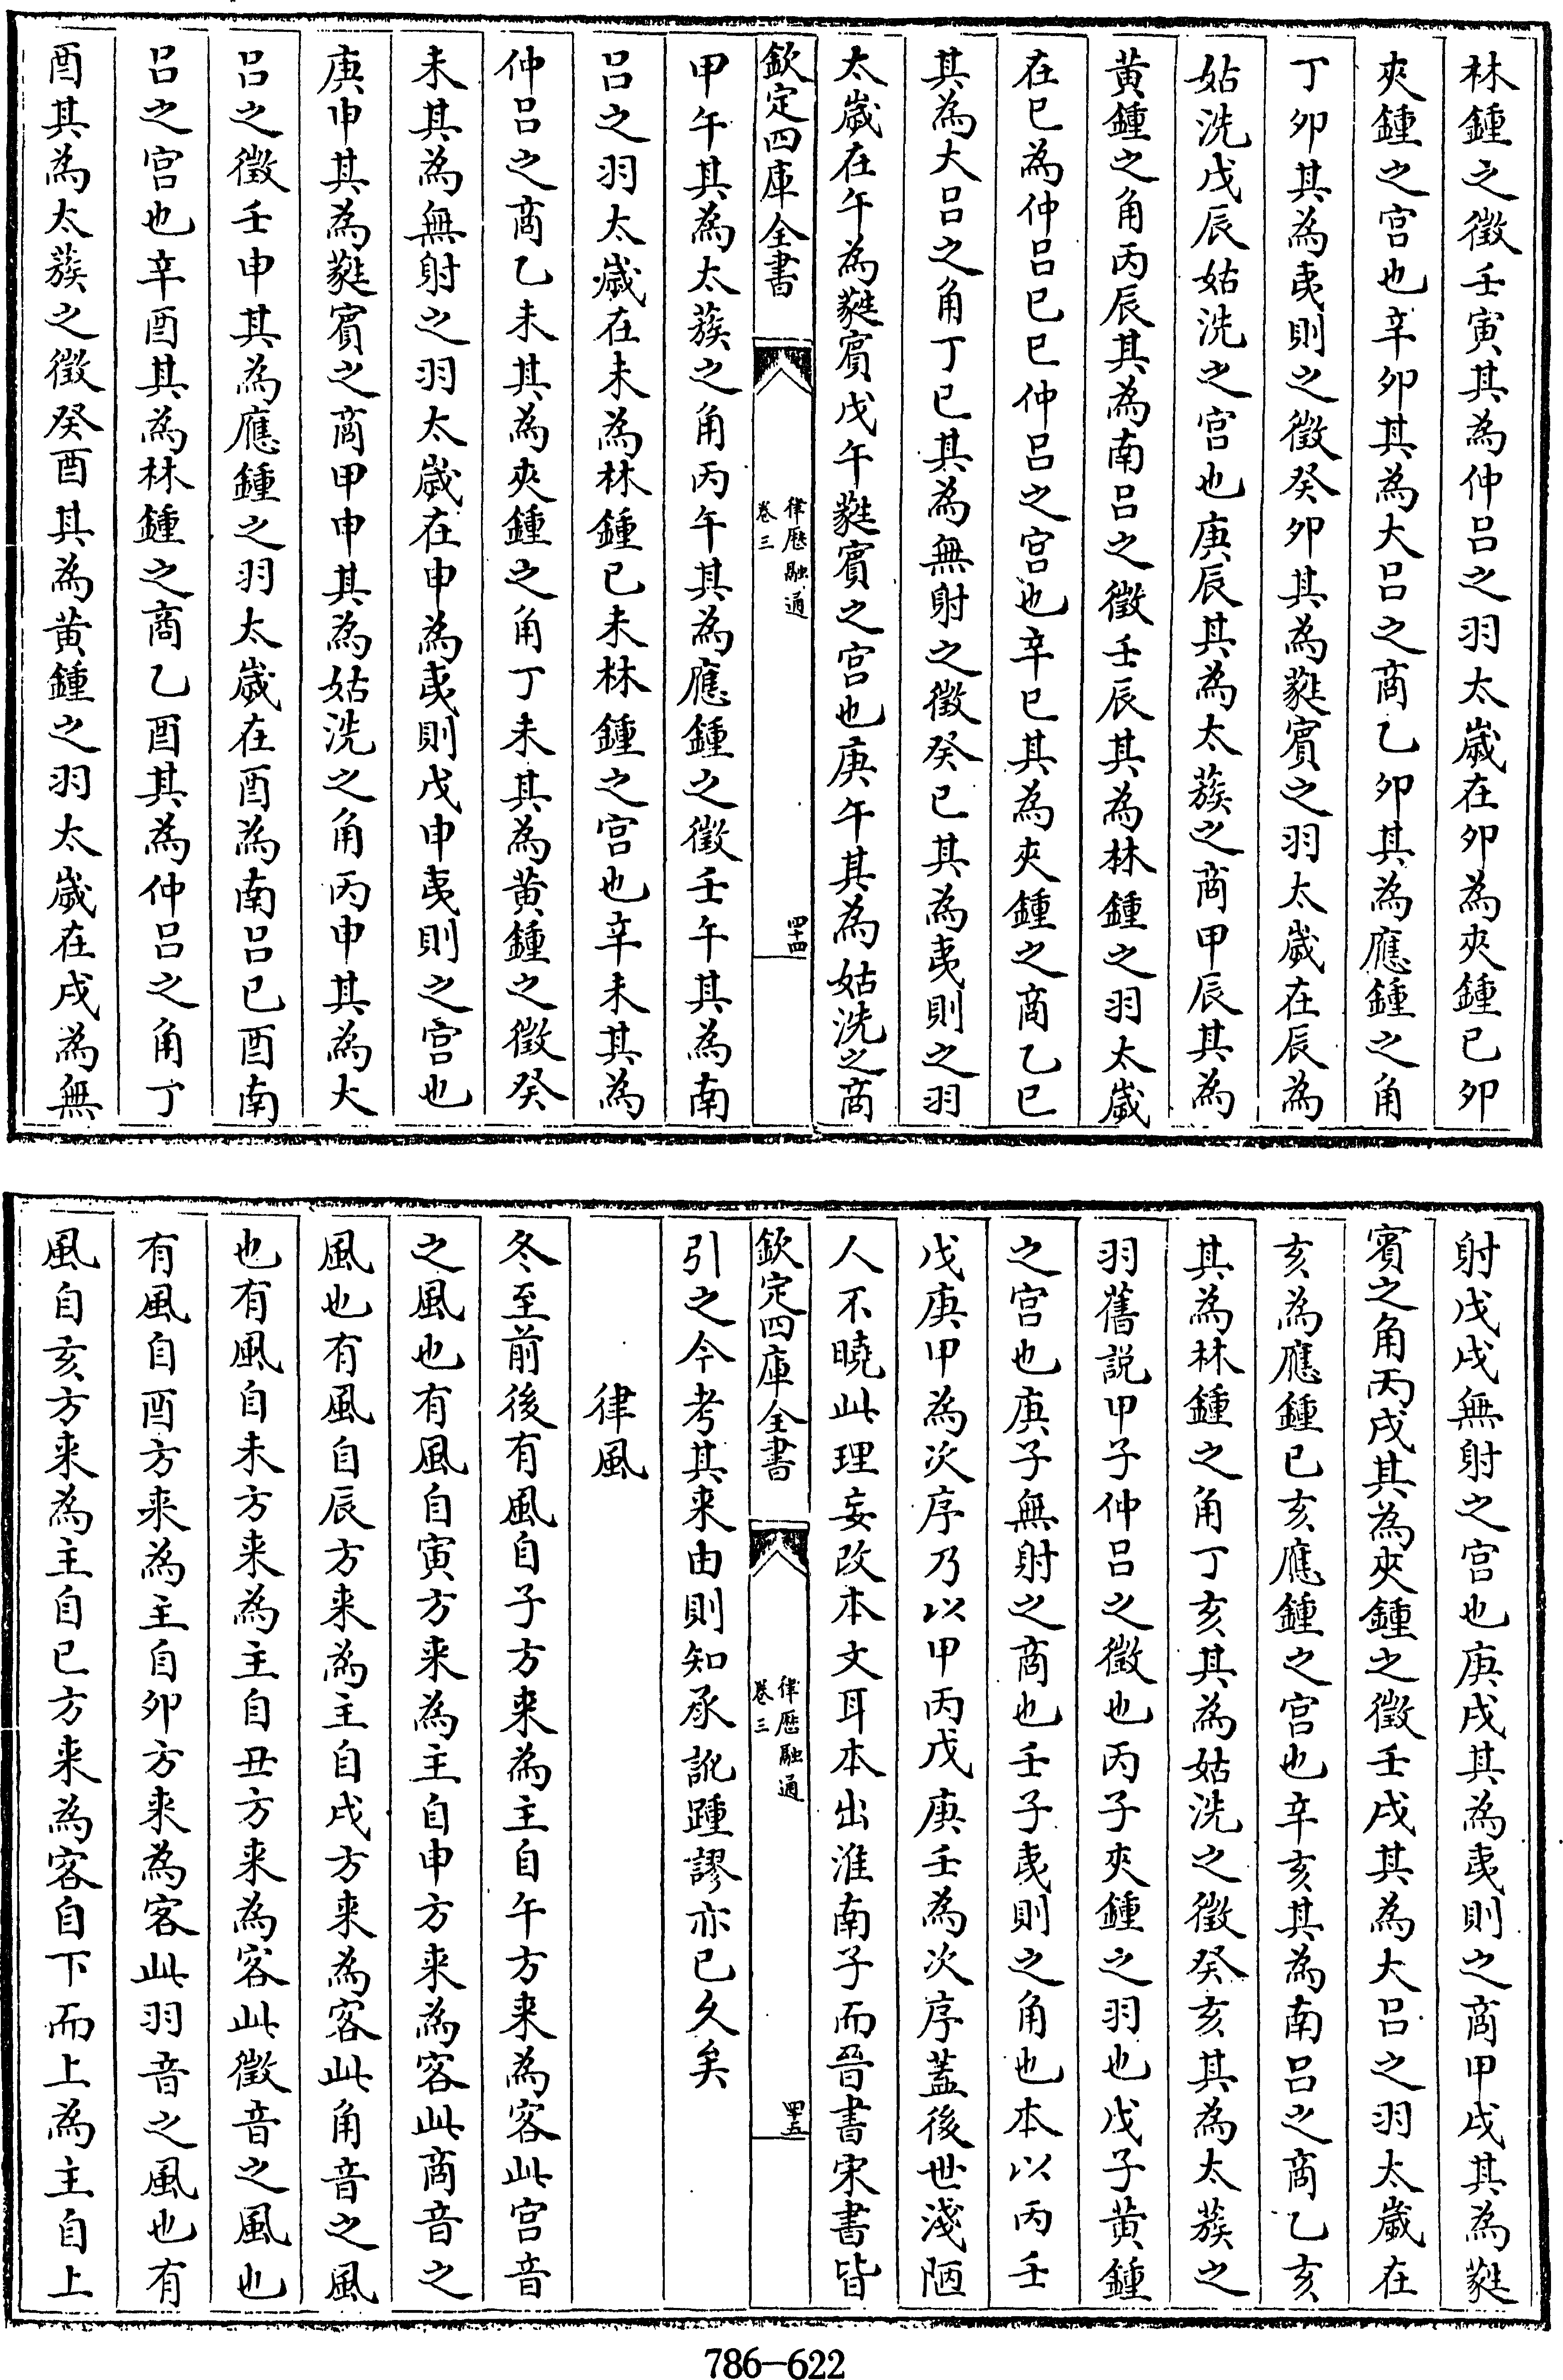 林鍾之徵壬寅其為仲吕之羽太嵗在卯為夾鍾已卯
夾鍾之宫也辛卯其為大吕之商乙卯其為應鍾之角
丁卯其為夷則之徵癸卯其為蕤賓之羽太嵗在辰為
姑洗戊辰姑洗之宫也庚辰其為太蔟之商甲辰其為
黄鍾之角丙辰其為南吕之徵壬辰其為林鍾之羽太嵗
在巳為仲吕巳巳仲吕之宫也辛巳其為夾鍾之商乙巳
其為大吕之角丁巳其為無射之徵癸巳其為夷則之羽
太嵗在午為蕤賓戊午蕤賓之宫也庚午其為姑洗之商
欽定四庫全書
律厯融通
卷三
四十四
甲午其為太蔟之角丙午其為應鍾之徵壬午其為南
吕之羽太嵗在未為林鍾已未林鍾之宫也辛未其為
仲吕之商乙未其為夾鍾之角丁未其為黄鍾之徵癸
未其為無射之羽太嵗在申為夷則戊申夷則之宫也
庚申其為蕤賓之商甲申其為姑洗之角丙申其為大
吕之徵壬申其為應鍾之羽太嵗在酉為南吕已酉南
吕之宫也辛酉其為林鍾之商乙酉其為仲吕之角丁
酉其為太蔟之徵癸酉其為黄鍾之羽太嵗在戌為無
射戊戌無射之宫也庚戌其為夷則之商甲戌其為蕤
賓之角丙戌其為夾鍾之徵壬戌其為大吕之羽太嵗在
亥為應鍾已亥應鍾之宫也辛亥其為南吕之商乙亥
其為林鍾之角丁亥其為姑洗之徵癸亥其為太蔟之
羽舊説甲子仲吕之徵也丙子夾鍾之羽也戊子黄鍾
之宫也庚子無射之商也壬子夷則之角也本以丙壬
戊庚甲為次序乃以甲丙戊庚壬為次序蓋後世淺陋
人不曉此理妄改本文耳本出淮南子而晉書宋書皆
欽定四庫全書
律厯融通
卷三
四十五
引之今考其来由則知承訛踵謬亦已久矣
律風
冬至前後有風自子方来為主自午方来為客此宫音
之風也有風自寅方来為主自申方来為客此商音之
風也有風自辰方来為主自戌方来為客此角音之風
也有風自未方来為主自丑方来為客此徵音之風也
有風自酉方来為主自卯方来為客此羽音之風也有
風自亥方来為主自巳方来為客自下而上為主自上
786-622